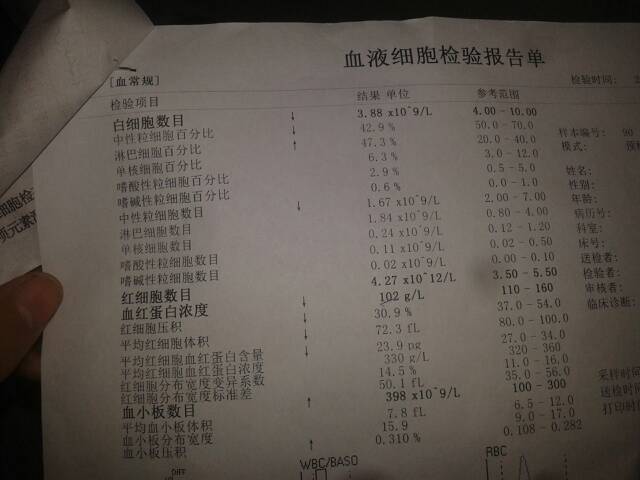 血液细胞检验报告单
[血常规] 检验时间:
检验项目 结果 单位 参考范围
白细胞数目 ↓ 3.88 x10^9/L 4.00 - 10.00
中性粒细胞百分比 ↓ 42.9 % 50.0 - 70.0 样本编号: 90
淋巴细胞百分比 ↑ 47.3 % 20.0 - 40.0 模式:
单核细胞百分比 6.3 % 3.0 - 12.0
嗜酸性粒细胞百分比 2.9 % 0.5 - 5.0 姓名:
嗜碱性粒细胞百分比 0.6 % 0.0 - 1.0 性别:
中性粒细胞数目 ↓ 1.67 x10^9/L 2.00 - 7.00 年龄:
淋巴细胞数目 1.84 x10^9/L 0.80 - 4.00 病历号:
单核细胞数目 0.24 x10^9/L 0.12 - 1.20 科室:
嗜酸性粒细胞数目 0.11 x10^9/L 0.02 - 0.50 床号:
嗜碱性粒细胞数目 0.02 x10^9/L 0.00 - 0.10 送检者:
红细胞数目 4.27 x10^12/L 3.50 - 5.50 检验者:
血红蛋白浓度 ↓ 102 g/L 110 - 160 审核者:
红细胞压积 ↓ 30.9 % 37.0 - 54.0 临床诊断:
平均红细胞体积 ↓ 72.3 fL 80.0 - 100.0
平均红细胞血红蛋白含量 ↓ 23.9 pg 27.0 - 34.0
平均红细胞血红蛋白浓度 330 g/L 320 - 360
红细胞分布宽度变异系数 14.5 % 11.0 - 16.0
红细胞分布宽度标准差 50.1 fL 35.0 - 56.0 采样时间
血小板数目 ↑ 398 x10^9/L 100 - 300 送检时间
平均血小板体积 7.8 fL 6.5 - 12.0 打印时间
血小板分布宽度 15.9 9.0 - 17.0
血小板压积 ↑ 0.310 % 0.108 - 0.282
DIFF WBC/BASO RBC
细胞检
项元素